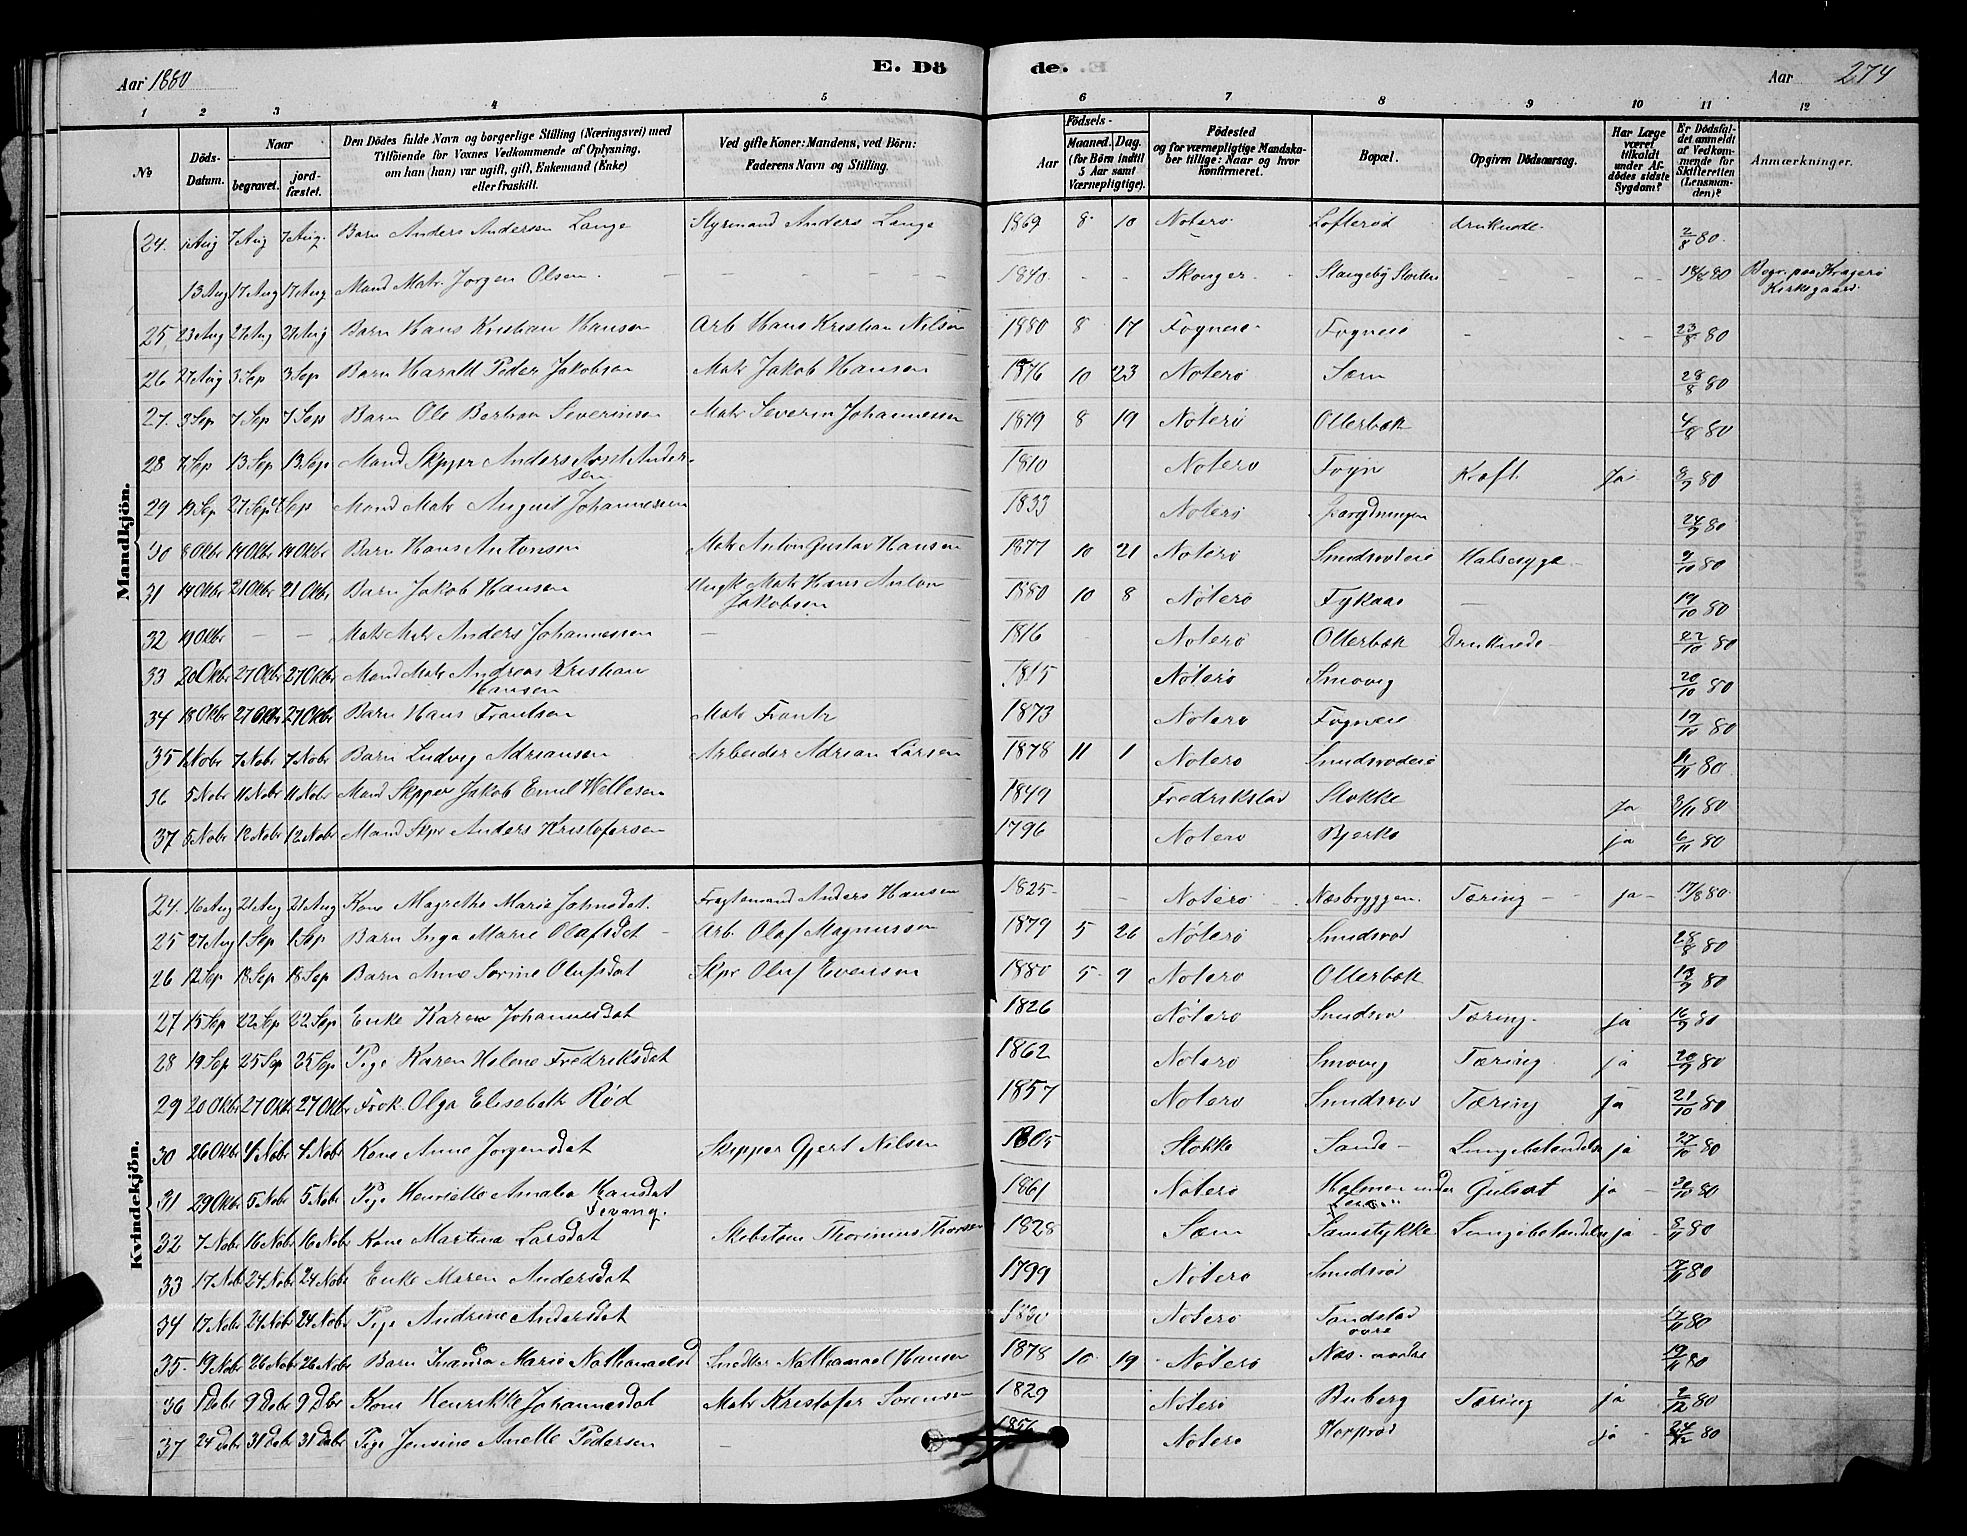 Aar 1880
E. Dö
de.
Aar 274
1 2 3 4 5 6 7 8 9 10 11 12
No
Döds-Datum.
Naar
begravet.
jordfæstet.
Den Dödes fulde Navn og borgerlige Stilling (Næringsvei) med
Tilföiende for Voxnes Vedkommende af Oplysning,
om han (hun) var ugift, gift, Enkemand (Enke)
eller fraskilt.
Ved gifte Koner: Mandens, ved Börn:
Faderens Navn og Stilling.
Födsels-
Aar
Maaned. Dag.
(for Börn indtil
5 Aar samt
Værnepligtige).
Födested
og for værnepligtige Mandska-
ber tillige: Naar og hvor
konfirmeret.
Bopæl.
Opgiven Dödsaarsag.
Har Læge
været
tilkaldt
under Af-
dödes sidste
Sygdom?
Er Dödsfal-
det anmeldt
af Vedkom-
mende for
Skifteretten
(Lensman-
den)?
Anmærkninger.
Mandkjön.
24. 1 Aug 7 Aug 7 Aug. Barn Anders Andersen Lange Styrmand Anders Lange 1869 8 10 Noterø Lofterød druknede. 2/8 80.
13 Aug 17 Aug 17 Aug Mand Matr. Jorgen Olsen. — — — — 1840 - - Skouger Stangeby - - 18/8 80 Begr. paa Kragerø
Kirkegaard.
25 23 Aug 27 Aug 27 Aug Barn Hans Kristian Hansen Arb Hans Kristian Nilsen 1880 8 17 Fogneie Fogneie - - - 23/8 80
26 27 Aug 3 Sep 3 Sep Barn Harald Peder Jakobsen Matr Jakob Hansen 1876 10 23 Noterø Sem 28/8 80
27. 3 Sep 7 Sep 7 Sep Barn Ole Severinsen Matr Severin Johannessen 1879 8 19 Noterø Ollerbok 80
28 7 Sep 13 Sep 13 Sep Mand Skpper Anders Ander-
sen 1810 Noterø Foyn Kraft. Ja 8/9 80
29 19 Sep 27 Sep Sep Mand Matr August Johannessen 1833 Noterø 24/9 80
30 8 Oktbr 14 Oktbr 14 Oktbr Barn Hans Antonsen Matr Anton Gustav Hansen 1877 10 21 Noterø Smidsrodeie Halsesyge 9/10 80
31 14 Oktbr 21 Oktbr 21 Oktbr Barn Jakob Hansen Ungk Matr Hans Anton
Jakobsen 1880 10 8 Noterø Fykaas - 80
32 19 Oktbr - - Matr Anders Johannessen - 1816 Noterø Ollerbok Druknede - 22/10 80
33 20 Oktbr 27 Oktbr 27 Oktbr Mand Matr Andreas Kristian
Hansen 1815 Noterø Smovig 20/10 80
34 18 Oktbr 27 Oktbr 27 Oktbr Barn Hans Frantsen Matr Frantz 1873 Noterø Fogneie 19/10 80
35 1 Nobr 7 Nobr 7 Nobr Barn Ludvig Adriansen Arbeider Adrian Larsen 1878 11 1 Noterø Smidsrodeie 80
36 5 Nobr 11 Nobr 11 Nobr Mand Skpper Jakob Emil Wellesen 1849 Fredrikstad Stokke Ja 8/11 80
37 5 Nobr 12 Nobr 12 Nobr Mand Skpr Anders Kristofersen 1796 Noterø Bjerkø ja 6/11 80
Kvindekjön.
24. 16 Aug 21 Aug 21 Aug Kone Magrethe Marie Johnsdat. Fragtemand Anders Hansen 1825 - - Noterø Næsbryggen. Tæring - ja - 17/8 80
25 27 Aug 1 Sep 1 Sep Barn Inga Marie Olafsdat - Arb Olaf Magnussen 1879 5 26 Nøterø Smidsrod 28/8 80
26 12 Sep 18 Sep 18 Sep Barn Anne Sorine Olufsdat Skpr Oluf Evensen 1880 5 9 Noterø Ollerbok 80
27 15 Sep 22 Sep 22 Sep Enke Karen Johannesdat 1826 Nøterø Smidsrø Tæring. ja 16/9 80
28 19 Sep 25 Sep 25 Sep Pige Karen Helene Fredriksdat 1862 Noterø Smovig Tæring ja 20/9 80
29 20 Oktbr 27 Oktbr 27 Oktbr Frøk. Olga Elisebeth Rød 1857 Noterø Smidsrod Tæring ja 21/10 80
30 26 Oktbr 4 Nobr 4 Nobr Kone Anne Jorgensdat Skipper Gjert Nilsen 1805 Stokke Sande - Lungebetændelse ja 27/10 80
31 29 Oktbr 5 Nobr 5 Nobr Pige Henriette Amalia Hansdat
Fevang. 1861 Noterø Holmen under Gulsot ja - 30/10 80
32 7 Nobr 16 Nobr 16 Nobr Kone Martine Larsdat Thorinius Thorsen 1828 Sem Samstykke Lungebetændelse ja - 8/11 80
33 17 Nobr 24 Nobr 24 Nobr Enke Maren Andersdat 1799 Noterø Smidsrød 80
34 17 Nobr 24 Nobr 24 Nobr Pige Andrine Andersdat Noterø Tandstad
øvre 17/11 80
35. 19 Nobr 26 Nobr 26 Nobr Barn Marie Nathanaelsd Smedkar Nathanael Hansen 1878 10 19 Nøterø Næs 19/11 80
36 1 Debr 9 Debr 9 Debr Kone Henrikke Johannesdat Matr Kristofer Sorensen 1829 Noterø Buberg Tæring ja 2/12 80
37 24 Debr 31 Debr 31 Debr Pige Jensine Anette Pedersen - 1856 Noterø ja - 24/12 80